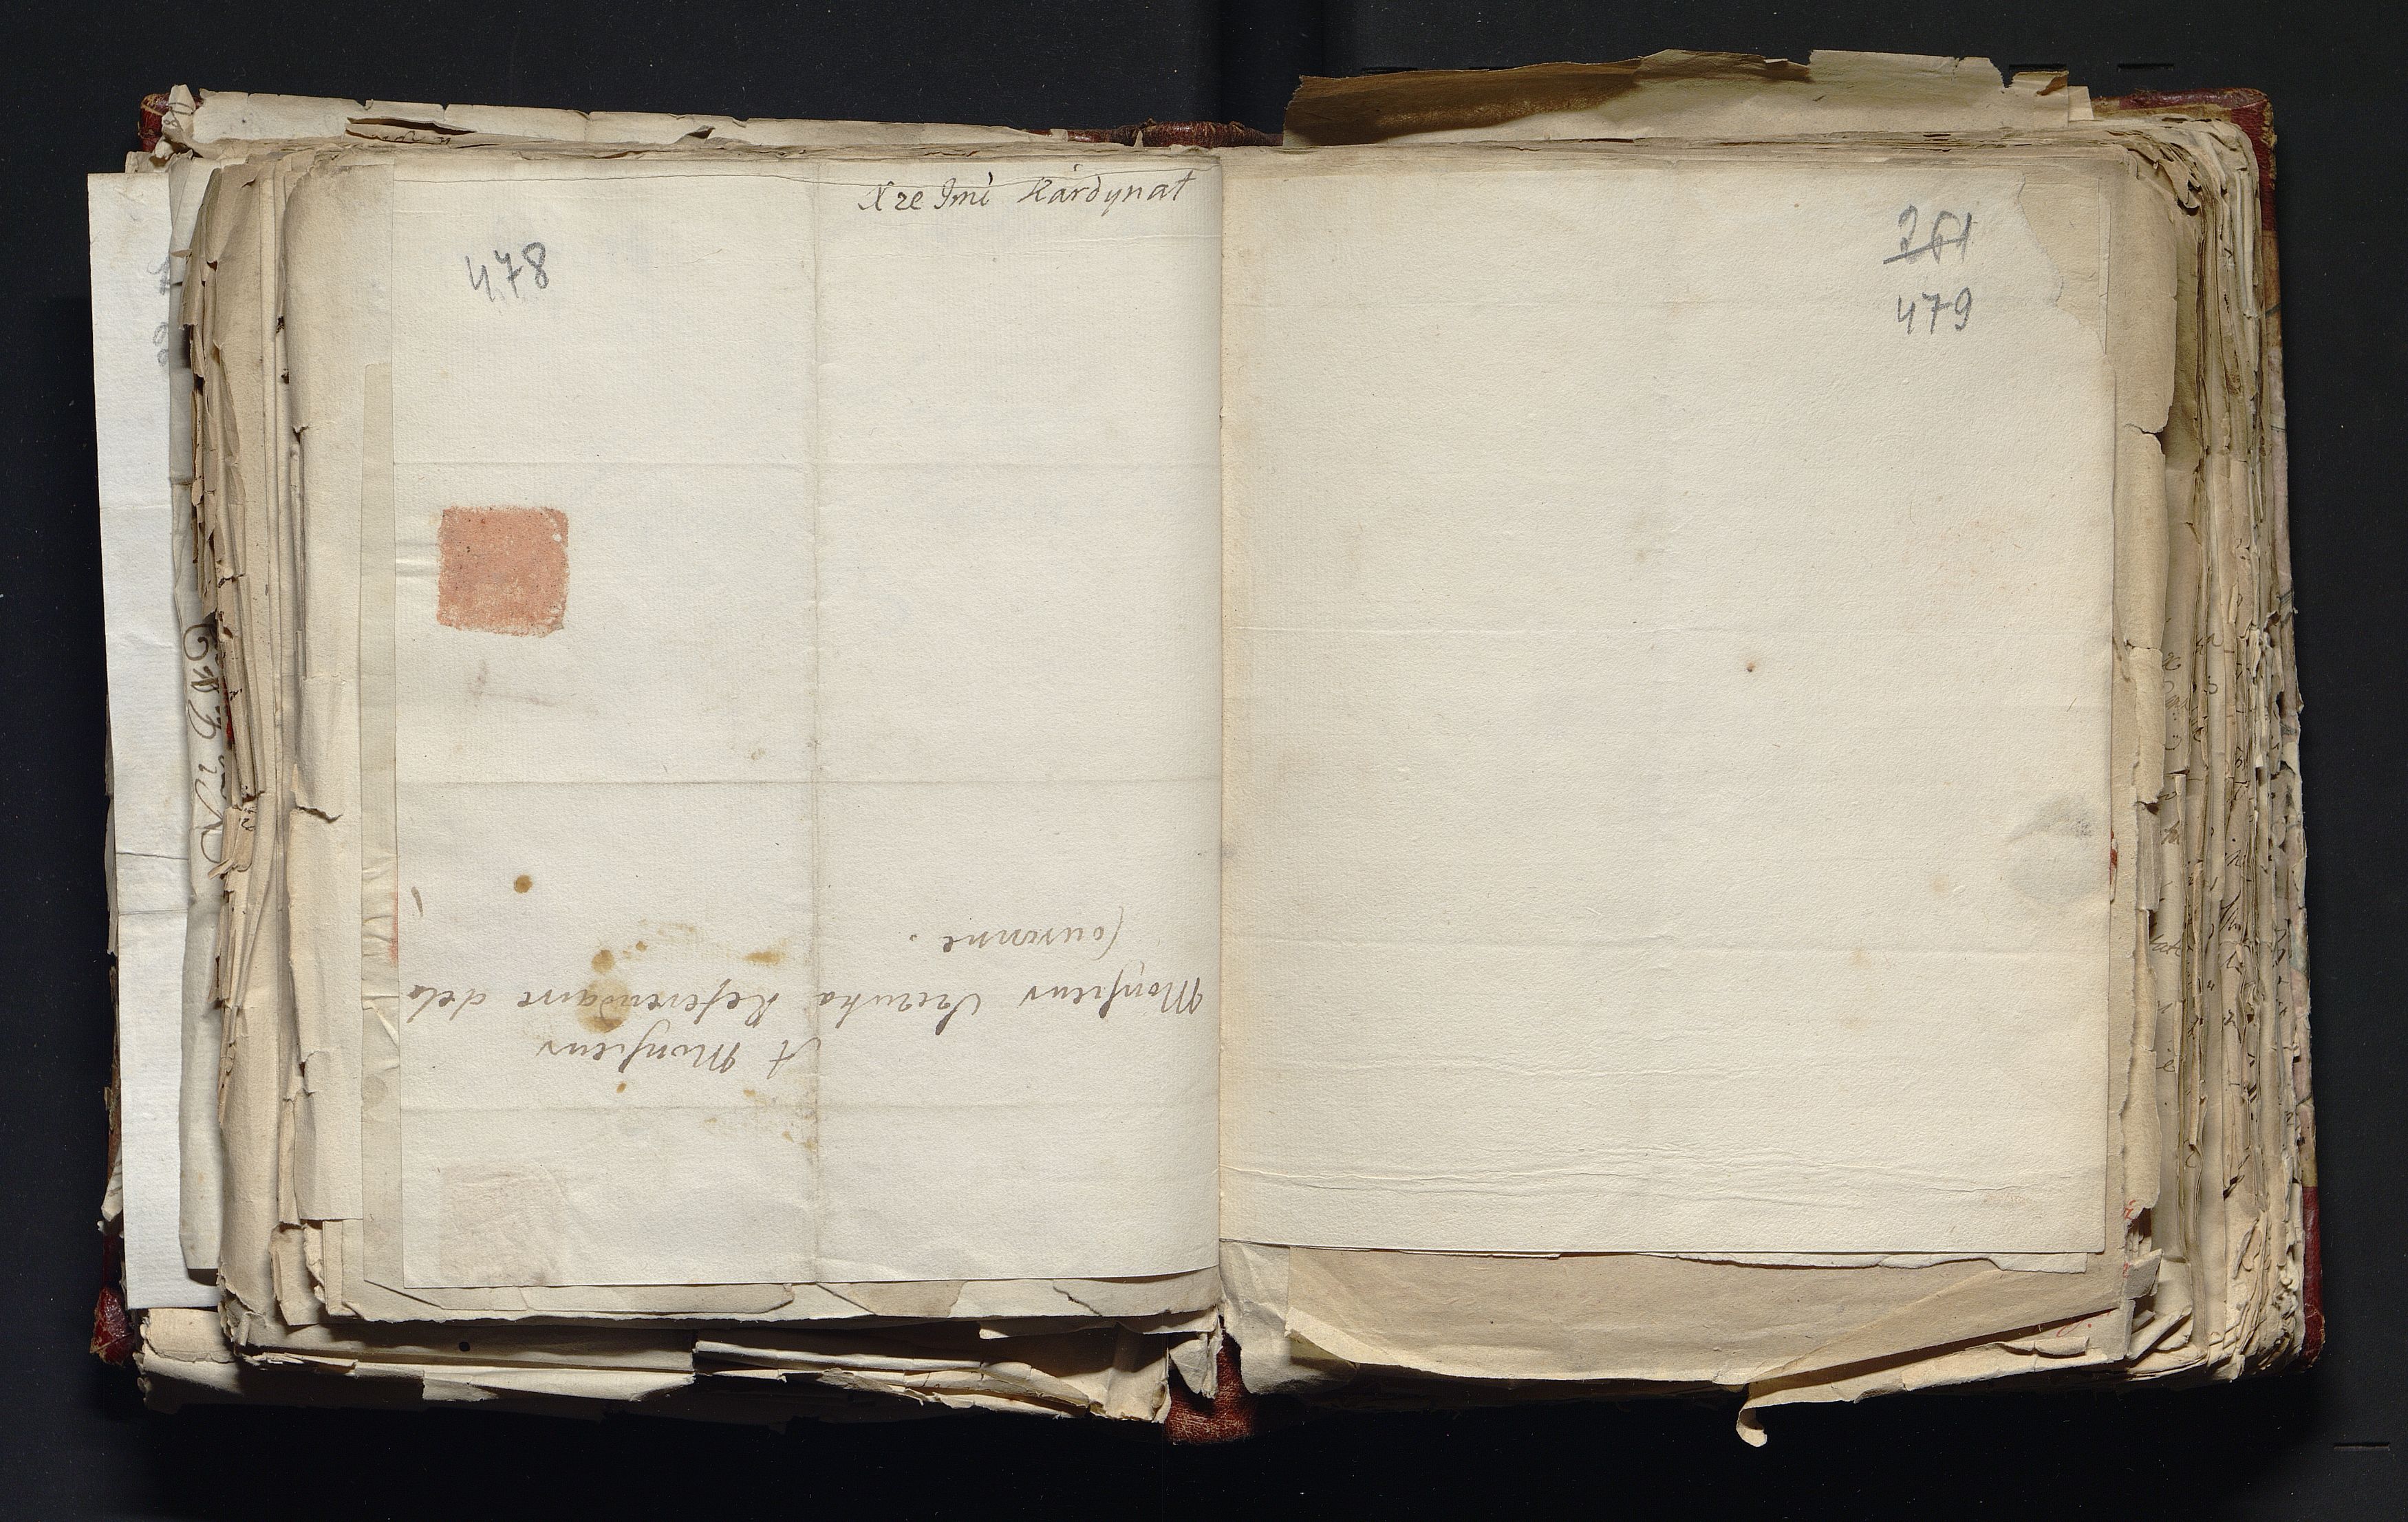 Xże Jmć Kardynał
478
A Monsieur
Monsieur Szczuka Referendaire dela
Couronne.
261
479